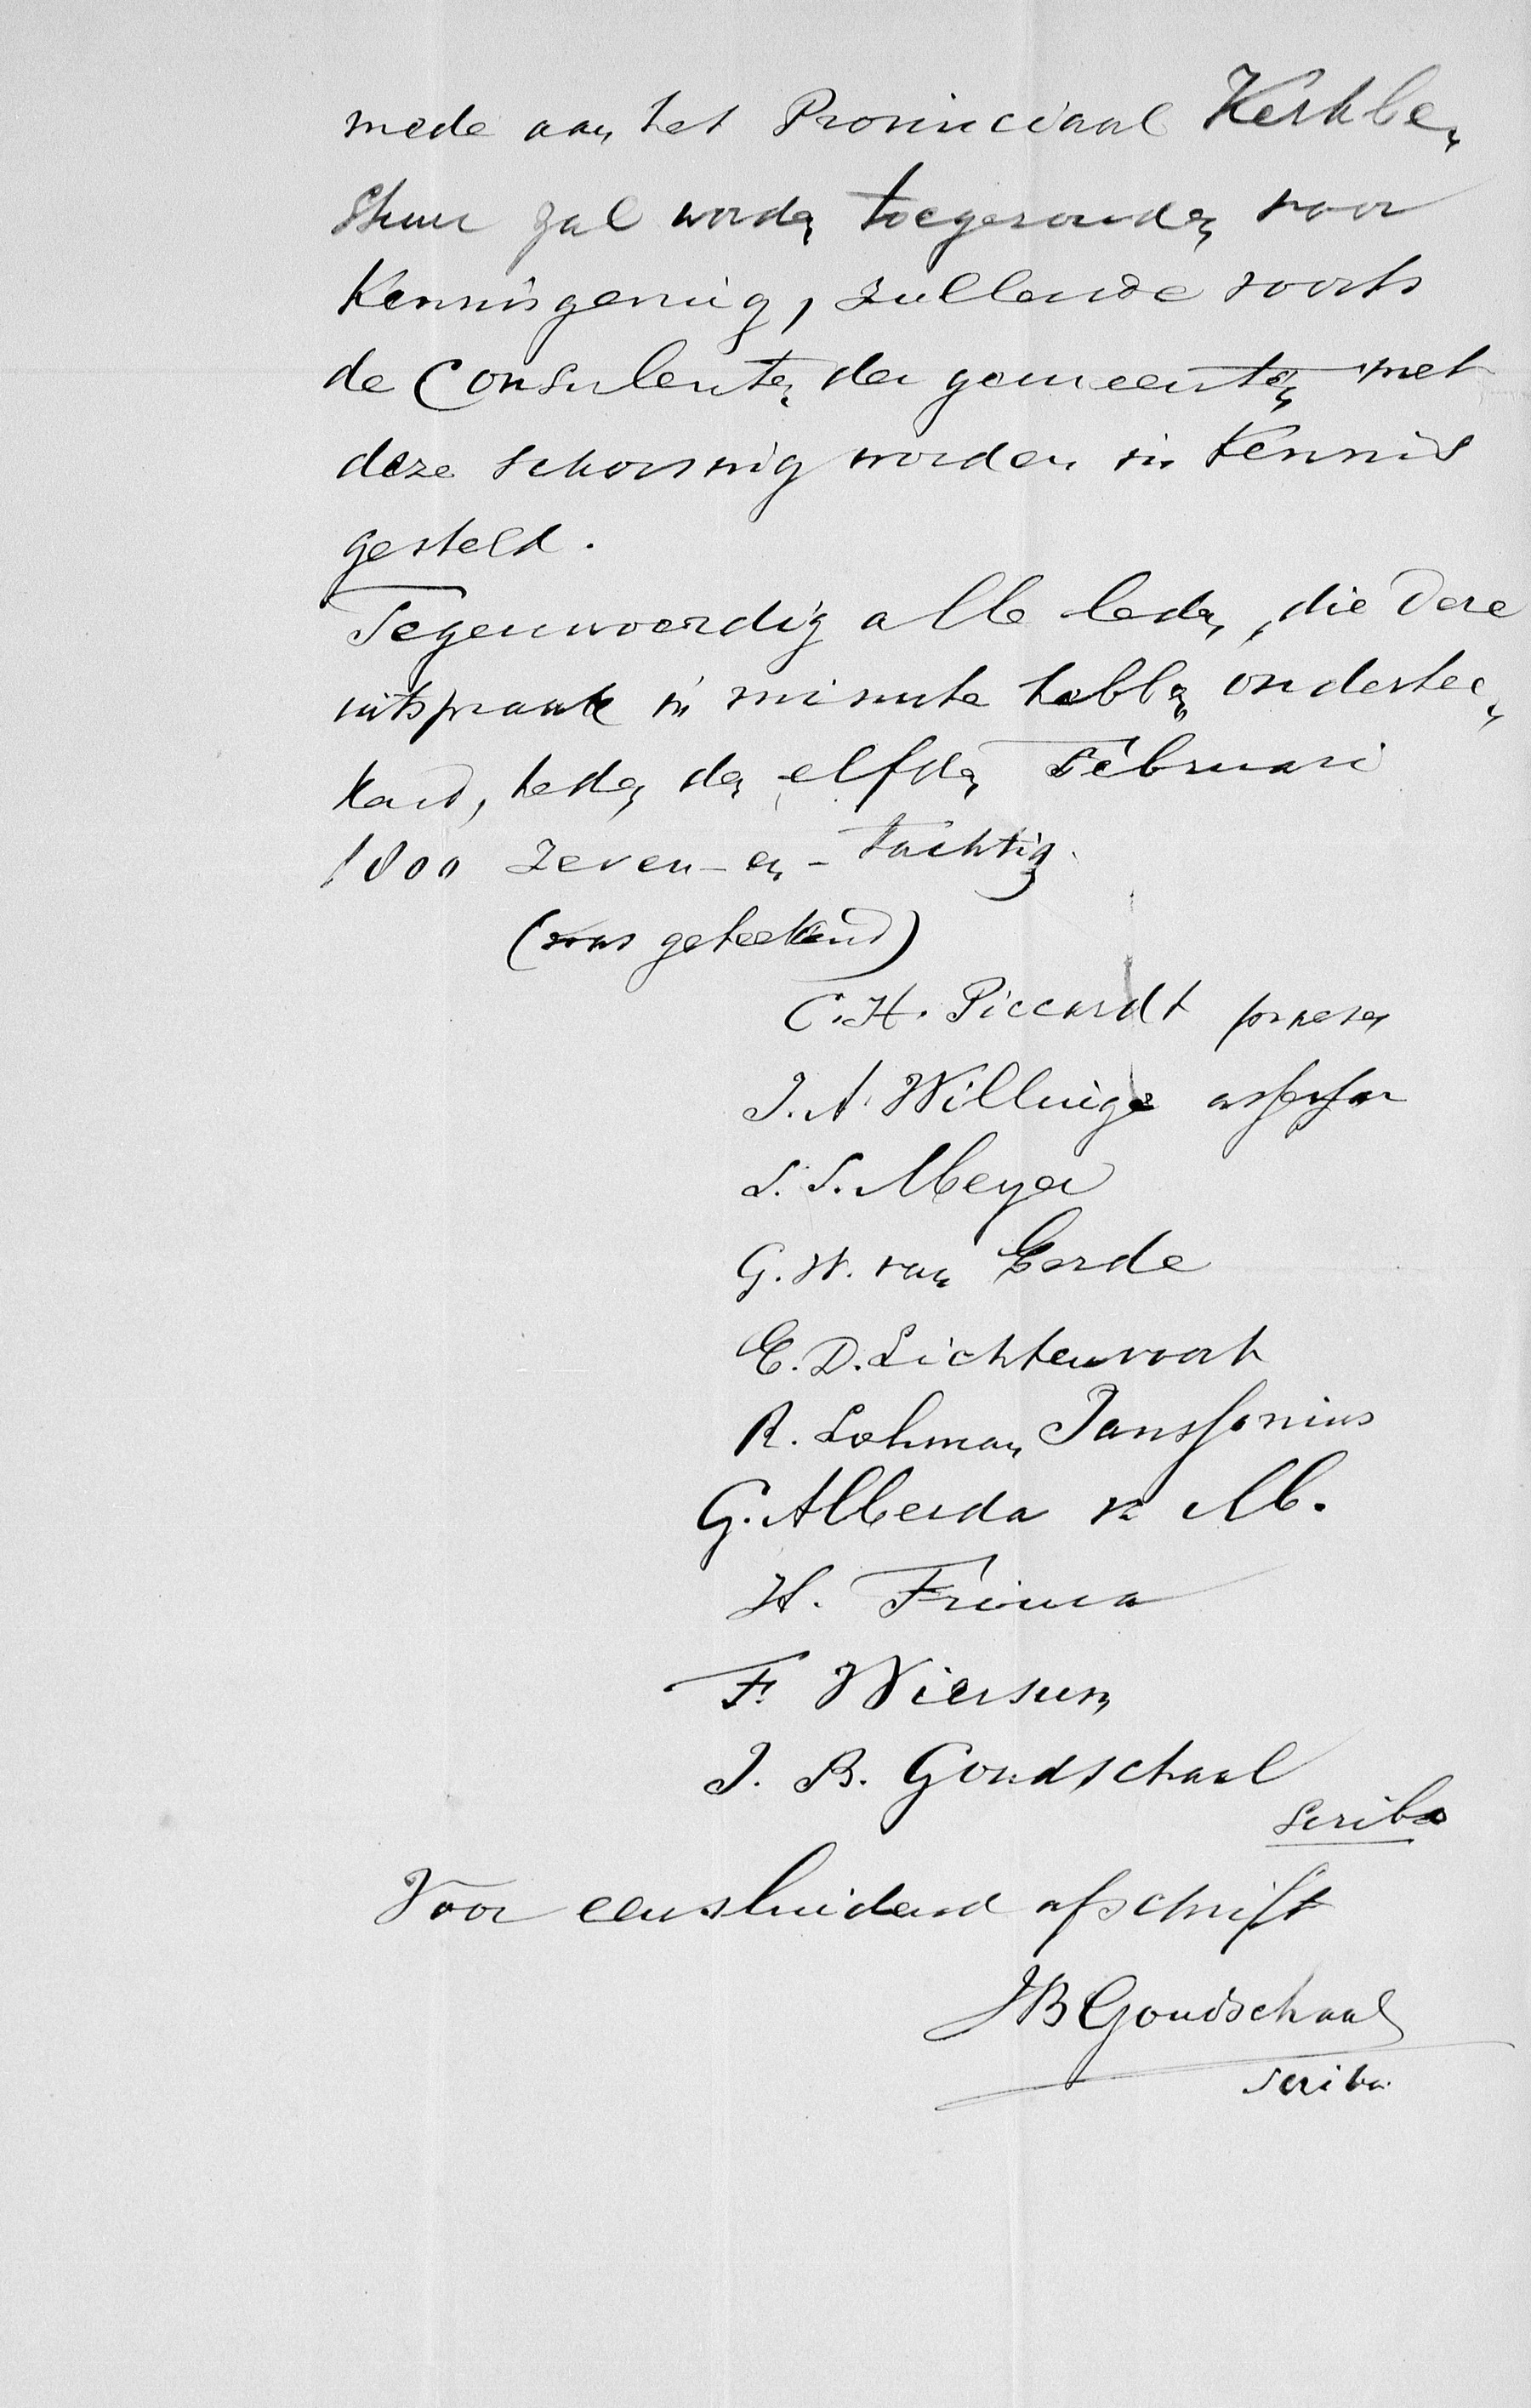 mede aan het Provinciaal Kerkbe„
stuur zal worden toegezonden voor
Kennisgeving, zullende voorts
de Consulenten der gemeenten met
deze schorsing worden in Kennis
gesteld.
Tegenwoordig alle leden, die deze
uitspraak in minute hebben onderteе„
kend, heden den elfden Februari
1800 zeven-en-tachtig.
(was geteekend)
C.H. Piccardt praeses
J.A. Willinge assessor
S.S. Meyer
G.W. van Eerde
E.D. Lichtenvoort
R. Lohman Janssonius
G. Alberda v. M.
H. Frima
F. Wiersum
J. B. Goudschaal
scriba
Voor eensluidend afschrift
JB Goudschaal
scriba